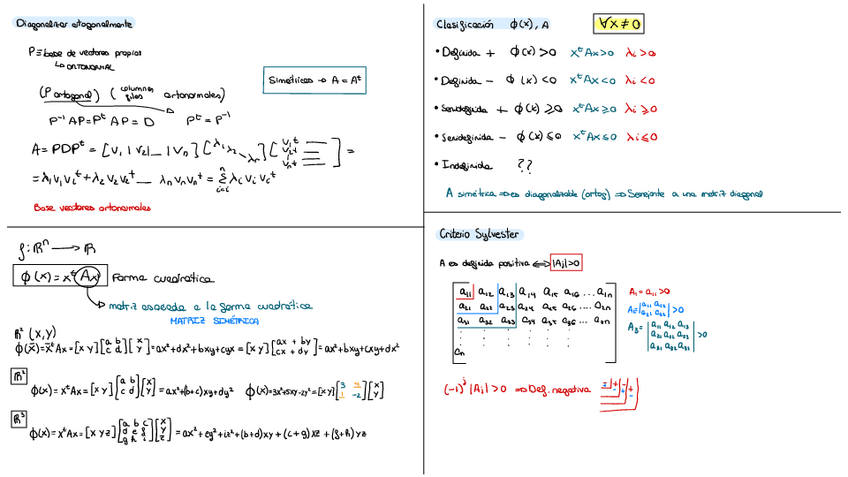 Diagonalizar ortogonalmente
P ≡ base de vectores propios
↳ ORTONORMAL
Simétricas → A = Aᵗ
(P ortogonal) (columnas filas ortonormales)
P⁻¹AP = PᵗAP = D Pᵗ = P⁻¹
A = PDPᵗ = [v₁ | v₂ | _ | vₙ] [λ₁ λ₂ ... λₙ] [v₁ᵗ v₂ᵗ ⋮ vₙᵗ] =
= λ₁v₁v₁ᵗ + λ₂v₂v₂ᵗ __ λₙvₙvₙᵗ = Σ λᵢvᵢvᵢᵗ
Base vectores ortonormales
Clasificación ϕ(x), A ∀x ≠ 0
• Definida + ϕ(x) > 0 xᵗAx > 0 λᵢ > 0
• Definida - ϕ(x) < 0 xᵗAx < 0 λᵢ < 0
• Semidefinida + ϕ(x) ⩾ 0 xᵗAx ⩾ 0 λᵢ ⩾ 0
• Semidefinida - ϕ(x) ⩽ 0 xᵗAx ⩽ 0 λᵢ ⩽ 0
• Indefinida ??
A simétrica ⇒ es diagonalizable (ortog) ⇒ Semejante a una matriz diagonal
f: ℝⁿ ⟶ ℝ
ϕ(x) = xᵗAx Forma cuadrática
matriz asociada a la forma cuadrática
MATRIZ SIMÉTRICA
ℝ² (x,y)
ϕ(x̄) = x̄ᵗAx = [x y] [a b; c d] [x; y] = ax² + dx² + bxy + cyx = [x y] [ax + by; cx + dy] = ax² + bxy + cxy + dx²
ℝ²
ϕ(x) = xᵗAx = [x y] [a b; c d] [x; y] = ax² + (b+c)xy + dy² ϕ(x) = 3x² + 5xy - 2y² = [x y] [3 4; 1 -2] [x; y]
ℝ³
ϕ(x) = xᵗAx = [x y z] [a b c; d e f; g h i] [x; y; z] = ax² + ey² + iz² + (b+d)xy + (c+g)xz + (f+h)yz
Criterio Sylvester
A es definida positiva ⟺ |Aᵢ| > 0
a₁₁ a₁₂ a₁₃ a₁₄ a₁₅ a₁₆ ... a₁ₙ
a₂₁ a₂₂ a₂₃ a₂₄ a₂₅ a₂₆ ... a₂ₙ
a₃₁ a₃₂ a₃₃ a₃₄ a₃₅ a₃₆ ... a₃ₙ
aₙ
A₁ = a₁₁ > 0
A₂ = |a₁₁ a₁₂; a₂₁ a₂₂| > 0
A₃ = |a₁₁ a₁₂ a₁₃; a₂₁ a₂₂ a₂₃; a₃₁ a₃₂ a₃₃| > 0
(-1)ʲ |Aⱼ| > 0 ⇒ Def. negativa